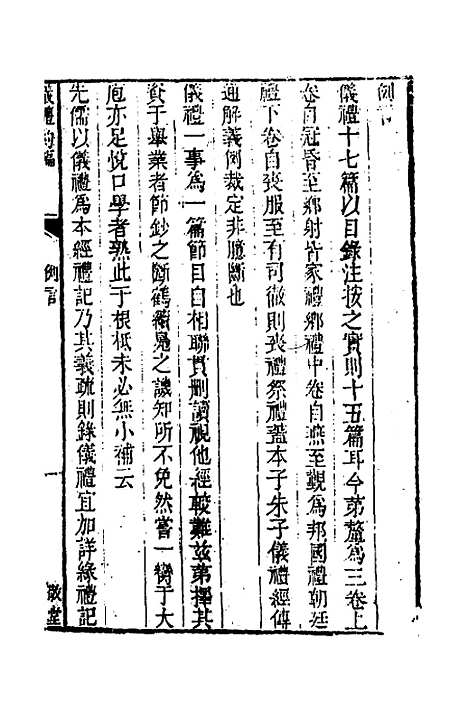 例言
儀禮十七篇以目錄注按之實則十五篇耳今苐釐為三卷上
卷自冠昏至鄉射皆家禮鄉禮中卷自燕至覲為邦國禮朝廷
禮下卷自喪服至有司徹則喪禮祭禮蓋本子朱子儀禮經傳
通解義例裁定非臆斷也
儀禮一事為一篇節目自相聯貫刪讀視他經較難兹苐擇其
資于舉業者節鈔之斷鶴續鳧之譏知所不免然嘗一臠于大
庖亦足悅口學者熟此于根柢未必無小補云
先儒以儀禮為本經禮記乃其義疏則錄儀禮宜加詳緣禮記
儀禮
例言
一